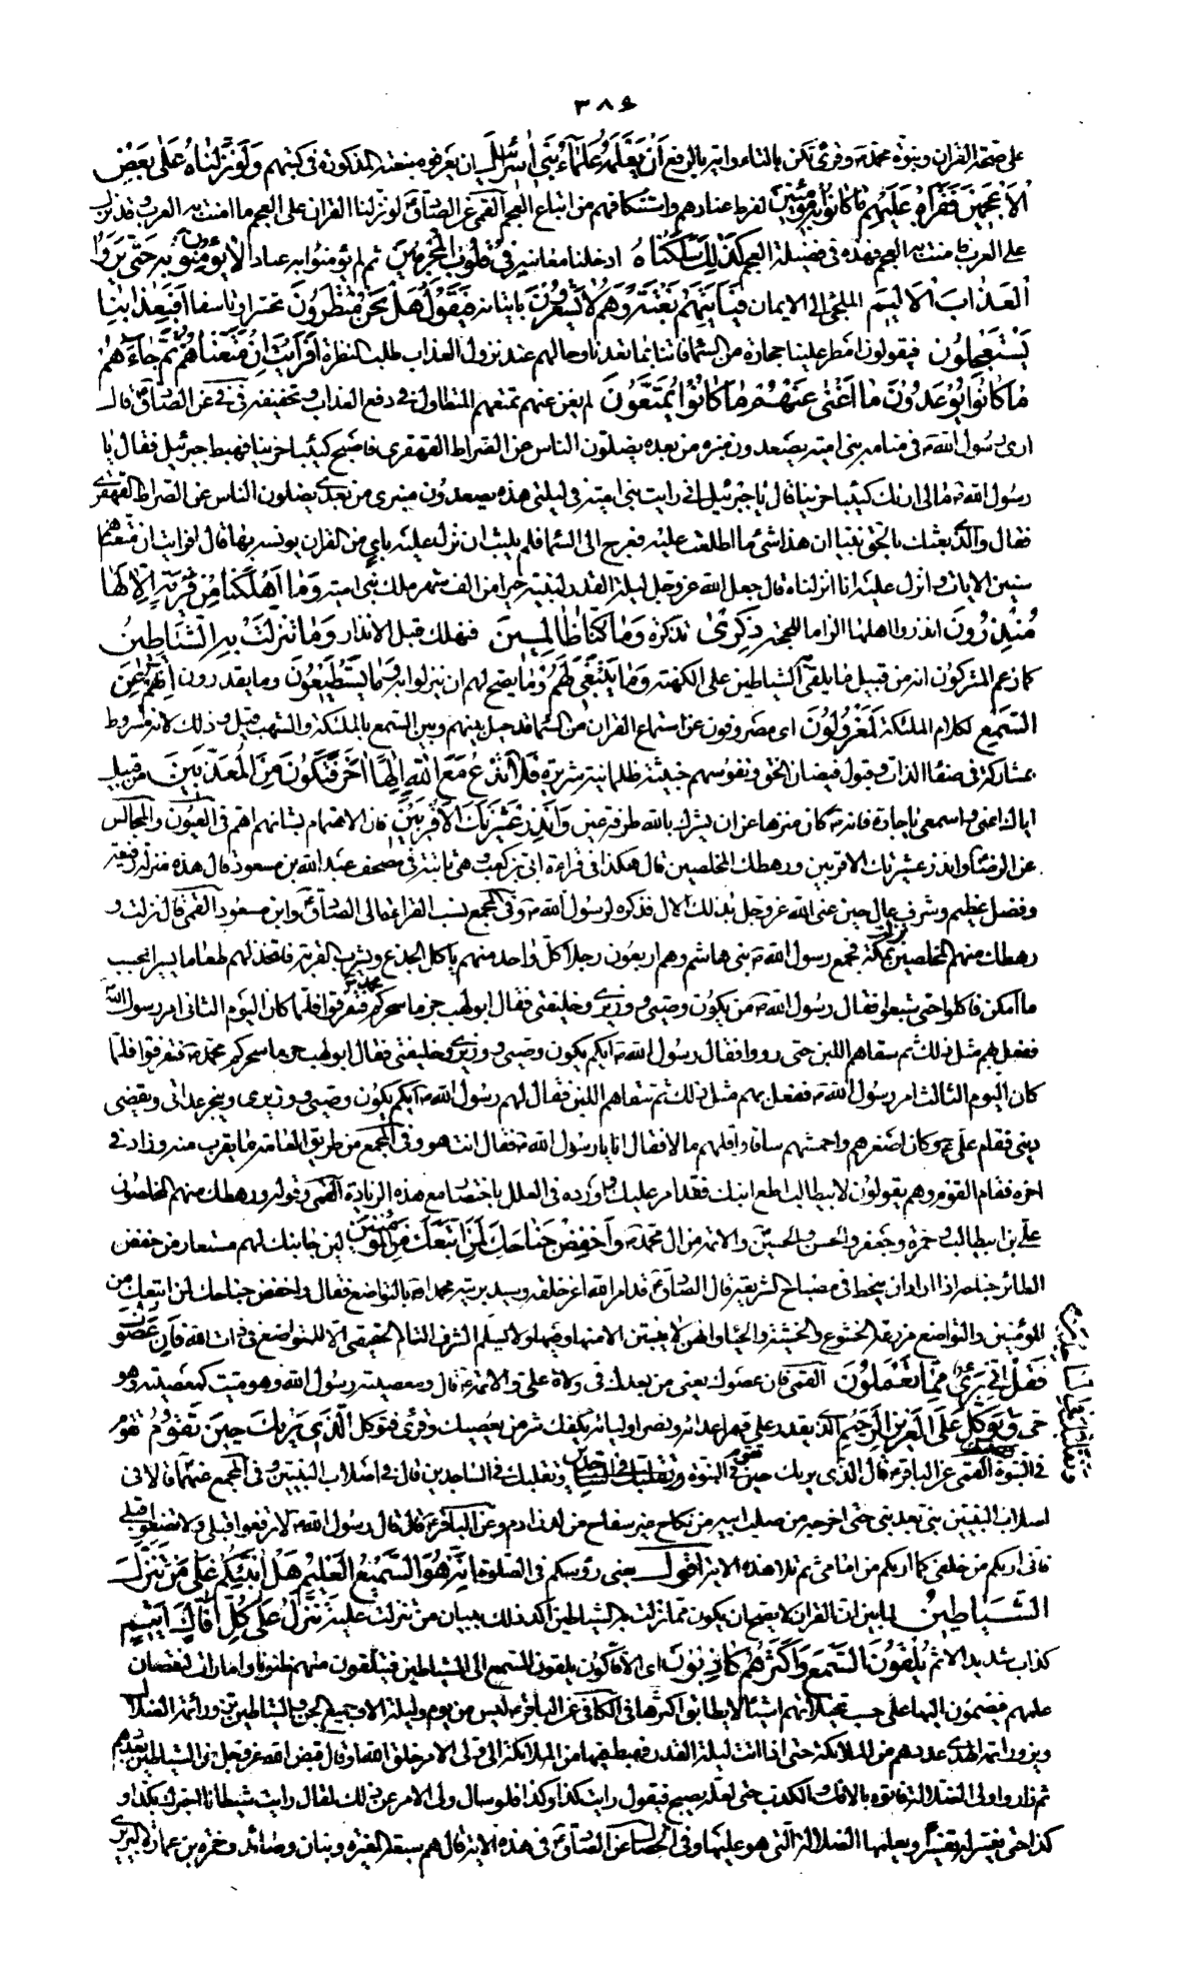 ٣٨٤
على صحة القران ونبوة محمد ص وقرئ تكن بالتاء واية بالرفع اَنْ يَعْلَمَهُ عُلَمَاءُ بَنِي اِسْرَائِيلَ ان يعرفوه بنعته المذكورة في كتبهم وَلَوْ نَزَّلْنَاهُ عَلَى بَعْضِ
الْاَعْجَمِينَ فَقَرَاَهُ عَلَيْهِمْ مَا كَانُوا بِهِ مُؤْمِنِينَ لفرط عنادهم واستنكافهم من اتباع العجم القمي عن الصادق ع لو نزلنا القران على العجم ما امنت به العرب وقد نزل
على العرب فامنت به العجم فهذه فضيلة العجم كَذَلِكَ سَلَكْنَاهُ ادخلنا معانيه فِي قُلُوبِ الْمُجْرِمِينَ ثم لم يؤمنوا به عنادا لَا يُؤْمِنُونَ بِهِ حَتَّى يَرَوُا
الْعَذَابَ الْاَلِيمَ الملجئ الى الايمان فَيَاْتِيَهُمْ بَغْتَةً وَهُمْ لَا يَشْعُرُونَ باتيانه فَيَقُولُوا هَلْ نَحْنُ مُنْظَرُونَ تحسرا وتاسفا اَفَبِعَذَابِنَا
يَسْتَعْجِلُونَ فيقولون امطر علينا حجارة من السماء فاتنا بما تعدنا وحالهم عند نزول العذاب طلب النظرة اَفَرَاَيْتَ اِنْ مَتَّعْنَاهُمْ سِنِينَ ثُمَّ جَاءَهُمْ
مَا كَانُوا يُوعَدُونَ مَا اَغْنَى عَنْهُمْ مَا كَانُوا يُمَتَّعُونَ لم يغن عنهم تمتعهم المتطاول في دفع العذاب وتخفيفه في في عن الصادق ع قال
ارى رسول الله ص في منامه بني امية يصعدون منبره من بعده يضلون الناس عن الصراط القهقرى فاصبح كئيبا حزينا فهبط جبرئيل فقال يا
رسول الله ص مالى اراك كئيبا حزينا قال يا جبرئيل اني رايت بني امية في ليلتي هذه يصعدون منبرى من بعدى يضلون الناس عن الصراط القهقرى
فقال والذى بعثك بالحق نبيا ان هذا شئ ما اطلعت عليه فعرج الى السماء فلم يلبث ان نزل عليه باي من القران يونسه بها قال افرايت ان متعناهم
سنين الايات وانزل عليه انا انزلناه قال جعل الله عز وجل ليلة القدر لنبيه خيرا من الف شهر ملك بني امية وَمَا اَهْلَكْنَا مِنْ قَرْيَةٍ اِلَّا لَهَا
مُنْذِرُونَ انذروا اهلها الزاما للحجة ذِكْرَى تذكرة وَمَا كُنَّا ظَالِمِينَ فنهلك قبل الانذار وَمَا تَنَزَّلَتْ بِهِ الشَّيَاطِينُ
كما زعم المشركون انه من قبيل ما يلقى الشياطين على الكهنة وَمَا يَنْبَغِي لَهُمْ وما يصح لهم ان ينزلوا به وَمَا يَسْتَطِيعُونَ وما يقدرون اِنَّهُمْ عَنِ
السَّمْعِ لكلام الملئكة لَمَعْزُولُونَ اى مصروفون عن استماع القران من السماء قد حيل بينهم وبين السمع بالملئكة والشهب قيل وذلك لانه مشروط
بمشاركة في صفاء الذات وقبول فيضان الحق ونفوسهم خبيثة ظلمانية شريرة فَلَا تَدْعُ مَعَ اللهِ اِلَهًا اَخَرَ فَتَكُونَ مِنَ الْمُعَذَّبِينَ من قبيل
اياك اعني واسمعي يا جارة فانه ص كان منزها عن ان يشرك بالله طرفة عين وَاَنْذِرْ عَشِيرَتَكَ الْاَقْرَبِينَ فان الاهتمام بشانهم اهم في العيون والمجالس
عن الرضا ع وانذر عشيرتك الاقربين ورهطك المخلصين قال هكذا في قراءة ابي بن كعب وهي ثابتة في مصحف عبد الله بن مسعود قال هذه منزلة رفيعة
وفضل عظيم وشرف عال حين عنى الله عز وجل بذلك الال فذكره لرسول الله ص وفي المجمع نسب القراءة الى الصادق ع وابن مسعود القمي قال نزلت و
رهطك منهم المخلصين نزلت بمكة فجمع رسول الله ص بني هاشم وهم اربعون رجلا كل واحد منهم ياكل الجذع ويشرب القربة فاتخذ لهم طعاما يسيرا بحسب
ما امكن فاكلوا حتى شبعوا فقال رسول الله ص من يكون وصيي ووزيرى وخليفتي فقال ابو لهب جزما سحركم محمد ص فتفرقوا فلما كان اليوم الثاني امر رسول الله ص
ففعل بهم مثل ذلك ثم سقاهم اللبن حتى رووا فقال رسول الله ص ايكم يكون وصيي ووزيرى وخليفتي فقال ابو لهب جزما سحركم محمد ص فتفرقوا فلما
كان اليوم الثالث امر رسول الله ص ففعل بهم مثل ذلك ثم سقاهم اللبن فقال لهم رسول الله ص ايكم يكون وصيي ووزيرى وينجز عداتي ويقضي
ديني فقام علي ع وكان اصغرهم واحمشهم ساقا واقلهم مالا فقال انا يا رسول الله ص فقال انت هو وفي المجمع من طريق العامة ما يقرب منه وزاد في
اخره فقام القوم وهم يقولون لابيطالب اطع ابنك فقد امر عليك واورده في العلل باختصار مع هذه الزيادة القمي وقوله ورهطك منهم المخلصون
علي بن ابيطالب وحمزة وجعفر والحسن والحسين والائمة من ال محمد ص وَاخْفِضْ جَنَاحَكَ لِمَنِ اتَّبَعَكَ مِنَ الْمُؤْمِنِينَ لين جانبك لهم مستعار من خفض
الطائر جناحه اذا اراد ان ينحط في مصباح الشريعة قال الصادق ع قد امر الله اعز خلقه وسيد بريته محمدا ص بالتواضع فقال واخفض جناحك لمن اتبعك من
المؤمنين والتواضع مزرعة الخشوع والخشية والحياء وانهن لا ينبتن الا منها وفيها ولا يسلم الشرف التام الحقيقي الا للمتواضع في ذات الله فَاِنْ عَصَوْكَ
فَقُلْ اِنِّي بَرِيءٌ مِمَّا تَعْمَلُونَ القمي فان عصوك يعني من بعدك في ولاية علي والائمة ع قال ومعصية رسول الله وهو ميت كمعصيته وهو
حي وَتَوَكَّلْ عَلَى الْعَزِيزِ الرَّحِيمِ الذى يقدر على قهر اعدائه ونصر اوليائه يكفك شر من يعصيك وقرئ فتوكل الَّذِي يَرَاكَ حِينَ تَقُومُ تقوم
وَتَقَلُّبَكَ فِي السَّاجِدِينَ
في النبوة القمي عن الباقر ع قال الذى يريك حين تقوم في النبوة وتقلبك في الساجدين قال في اصلاب النبيين وفي المجمع عنهما ع قالا في
اصلاب النبيين نبي بعد نبي حتى اخرجه من صلب ابيه من نكاح غير سفاح من لدن ادم وعن الباقر ع قال قال رسول الله ص لا ترفعوا قبلي ولا تضعوا قبلي
فاني اريكم من خلفي كما اريكم من امامي ثم تلا هذه الاية اقول يعني رؤسكم في الصلوة اِنَّهُ هُوَ السَّمِيعُ الْعَلِيمُ هَلْ اُنَبِّئُكُمْ عَلَى مَنْ تَنَزَّلُ
الشَّيَاطِينُ لما بين ان القران لا يصح ان يكون مما نزلت به الشياطين اكد ذلك ببيان من تنزلت عليه تَنَزَّلُ عَلَى كُلِّ اَفَّاكٍ اَثِيمٍ
كذاب شديد الاثم يُلْقُونَ السَّمْعَ وَاَكْثَرُهُمْ كَاذِبُونَ اى الافاكون يلقون السمع الى الشياطين فيتلقون منهم ظنونا وامارات لنقصان
علمهم فيضمون اليها على حسب تخيلاتهم اشياء لا يطابق اكثرها في الكافي عن الباقر ع ليس من يوم وليلة الا وجميع الجن والشياطين تزور ائمة الضلالة
ويزور ائمة الهدى عددهم من الملائكة حتى اذا اتت ليلة القدر فهبط فيها من الملائكة الى ولي الامر خلق الله او قال قيض الله عز وجل من الشياطين بعددهم
ثم زاروا ولي الضلالة فاتوه بالافك والكذب حتى لعله يصبح فيقول رايت كذا وكذا فلو سال ولي الامر عن ذلك لقال رايت شيطانا اخبرك بكذا و
كذا حتى يفسر له تفسيرا ويعلمها الضلالة التي هو عليها وفي الخصال عن الصادق ع في هذه الاية قال هم سبعة المغيرة وبنان وصائد وحمزة بن عمارة البربرى